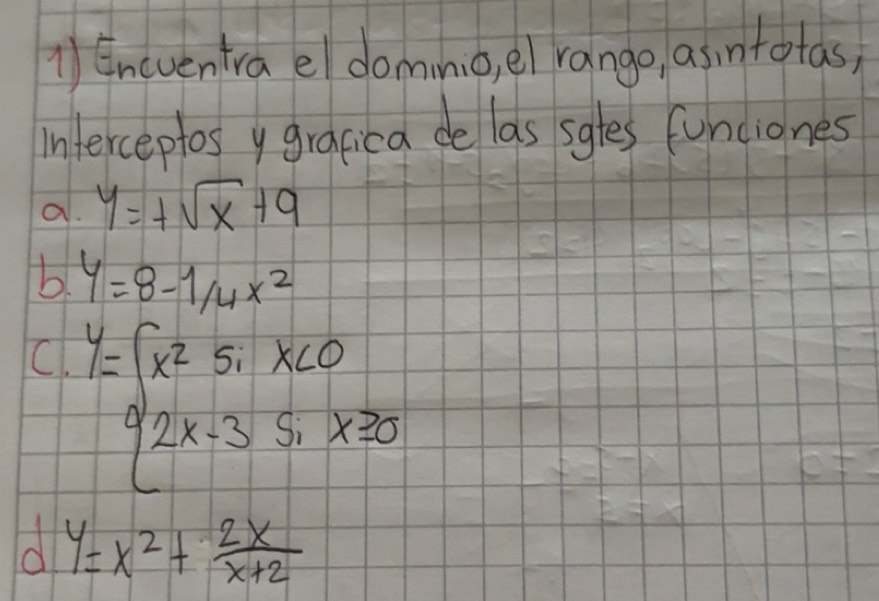 1) Encuentra el dominio, el rango, asintotas,
interceptos y grafica de las sgtes funciones
a. y = +√x + 9
b. y = 8 - 1/4x²
c. y = { x² si x<0
2x - 3 si x≥0
d y = x² + 2x/x+2